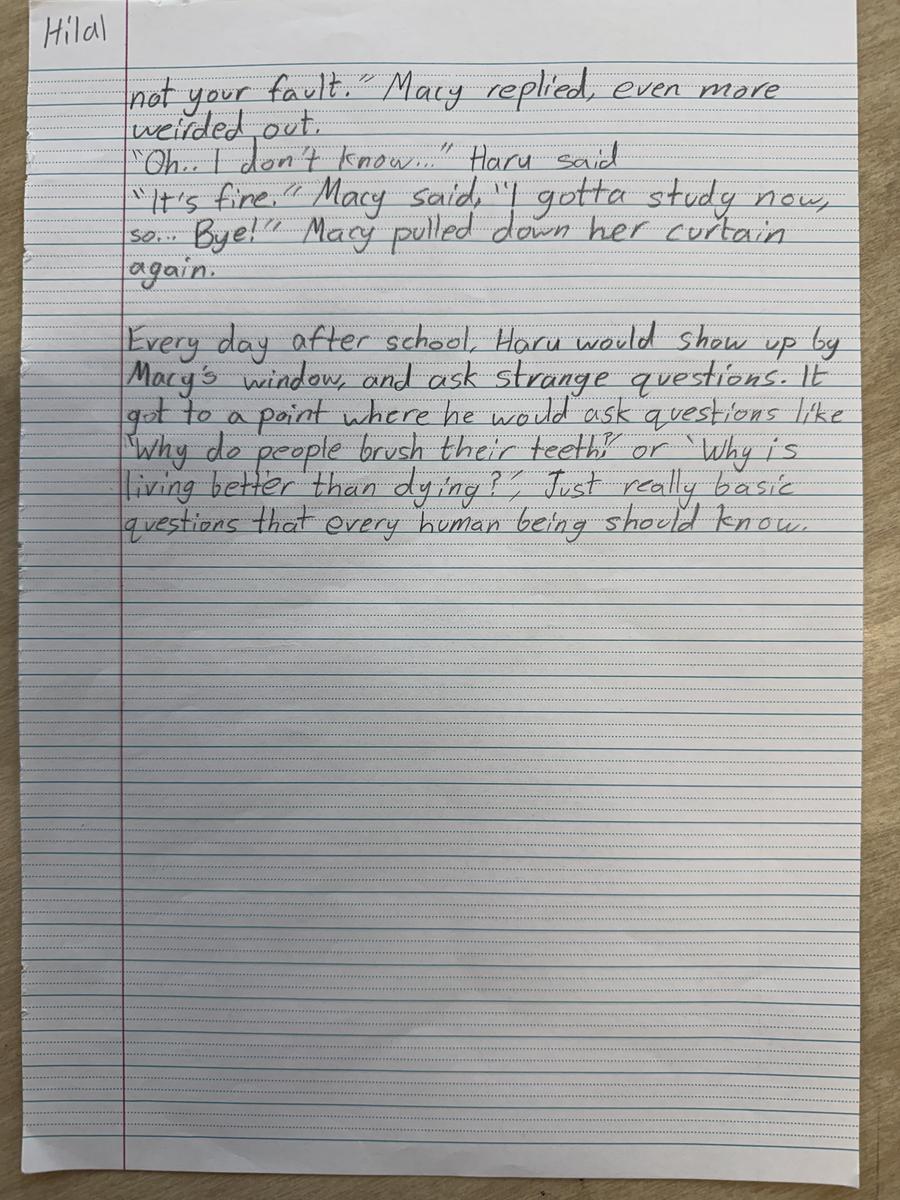 Hilal
not your fault." Macy replied, even more
weirded out.
"Oh.. I don't know..." Haru said
"It's fine." Macy said, "I gotta study now,
so... Bye!" Macy pulled down her curtain
again.
Every day after school, Haru would show up by
Macy's window, and ask strange questions. It
got to a point where he would ask questions like
"Why do people brush their teeth?" or "Why is
living better than dying?", Just really basic
questions that every human being should know.